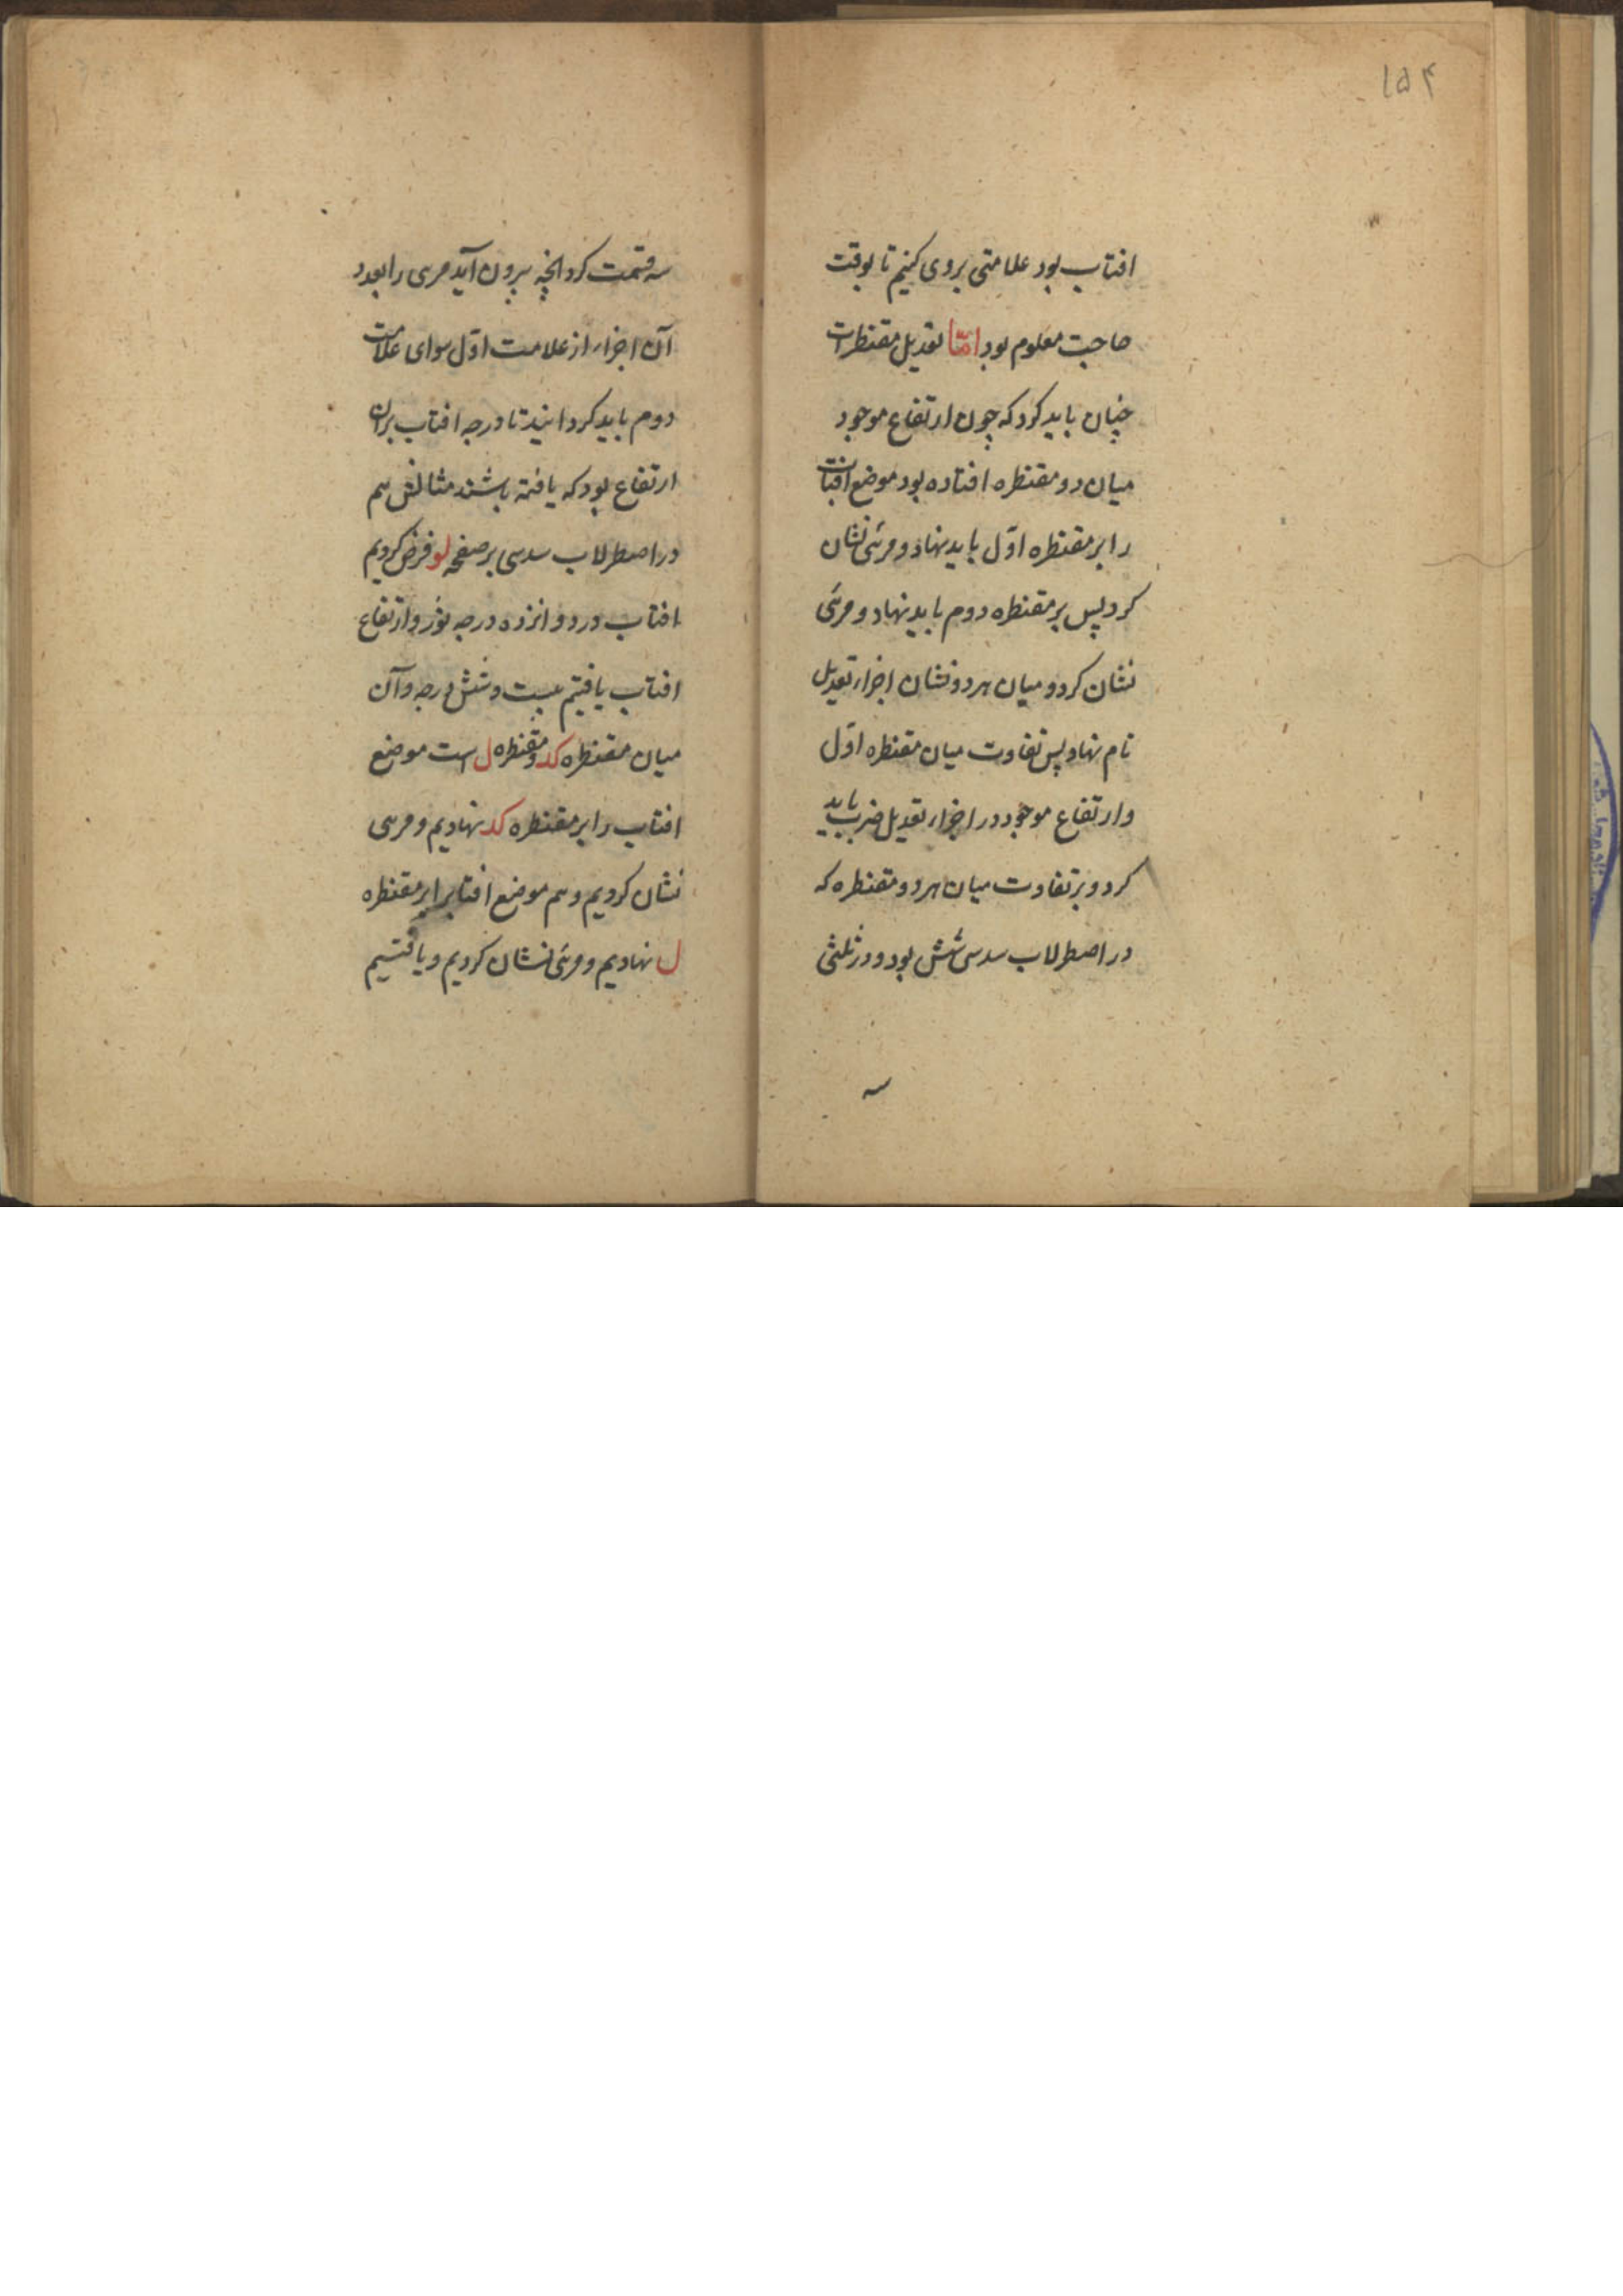 ۱۵۴
افتاب بود علامتی بروی کنیم تا بوقت
حاجت معلوم بود امّا تعدیل مقنطرات
چنان باید کرد که چون ارتفاع موجود
میان دو مقنطره افتاده بود موضع افتاب
را بر مقنطره اوّل باید نهاد و مرئی نشان
کرد پس بر مقنطره دوم باید نهاد و مرئی
نشان کرد و میان هر دو نشان اجزاء تعدیل
نام نهاد پس تفاوت میان مقنطره اوّل
و ارتفاع موجود در اجزاء تعدیل ضرب باید
کرد و بر تفاوت میان هر دو مقنطره که
در اصطرلاب سدسی شش بود و در ثلثی
سه
سه قسمت کرد انچه بیرون آید مری را بعدد
آن اجزاء از علامت اوّل سوای علامت
دوم باید کردانید تا درجه افتاب بران
ارتفاع بود که یافته باشند مثالش هم
در اصطرلاب سدسی بر صفحه لو فرض کردیم
افتاب در دوانزده درجه ثور و ارتفاع
افتاب یافتیم بیست و شش درجه و آن
میان مقنطره کد و مقنطره ل است موضع
افتاب را بر مقنطره کد نهادیم و مری
نشان کردیم و هم موضع افتاب را بر مقنطره
ل نهادیم و مرئی نشان کردیم و یافتیم